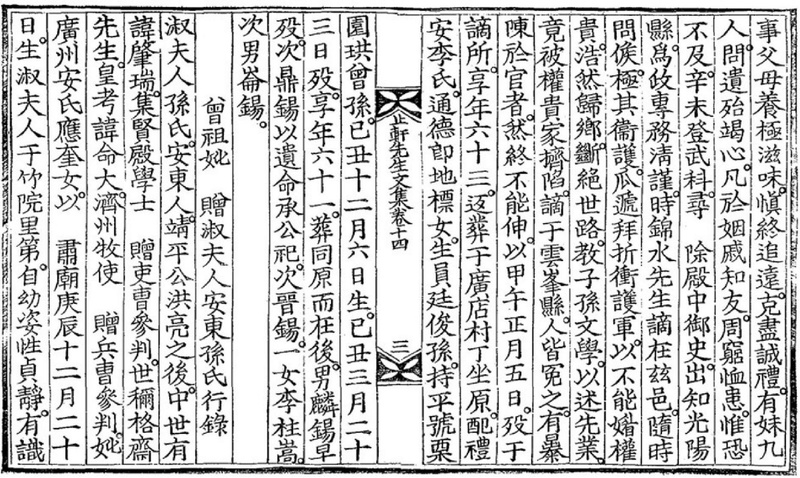 事父母養極滋味。愼終追遠。克盡誠禮。有妹九
人。問遺殆竭心。凡於姻戚知友。周窮恤患。惟恐
不及。辛未登武科。尋　除殿中御史。出知光陽
縣爲政專務淸謹。時錦水先生謫在玆邑。隨時
問候。極其衛護。瓜遞拜折衝護軍。以不能媚權
貴。浩然歸鄕。斷絕世路。敎子孫文學。以述先業。
竟被權貴家擠陷。謫于雲峯縣。人皆冤之。有曩
陳於官者。然終不能伸。以甲午正月五日。歿于
謫所。享年六十三。返葬于廣店村丁坐原。配禮
安李氏。通德郞地標女。生員廷俊孫。持平號栗
止軒先生文集卷十四
三
園珙曾孫。己丑十二月六日生。己丑三月二十
三日歿。享年六十一。葬同原而在後。男麟錫早
歿。次鼎錫以遺命承公祀。次晉錫。一女李柱嵩。
次男崙錫。
曾祖妣　贈淑夫人安東孫氏行錄
淑夫人孫氏。安東人。靖平公洪亮之後。中世有
諱肇瑞。集賢殿學士　贈吏曹參判。世稱格齋
先生。皇考諱命大。濟州牧使　贈兵曹參判。妣
廣州安氏應奎女。以　肅廟庚辰十二月二十
日生淑夫人于竹院里第。自幼姿性貞靜。有識